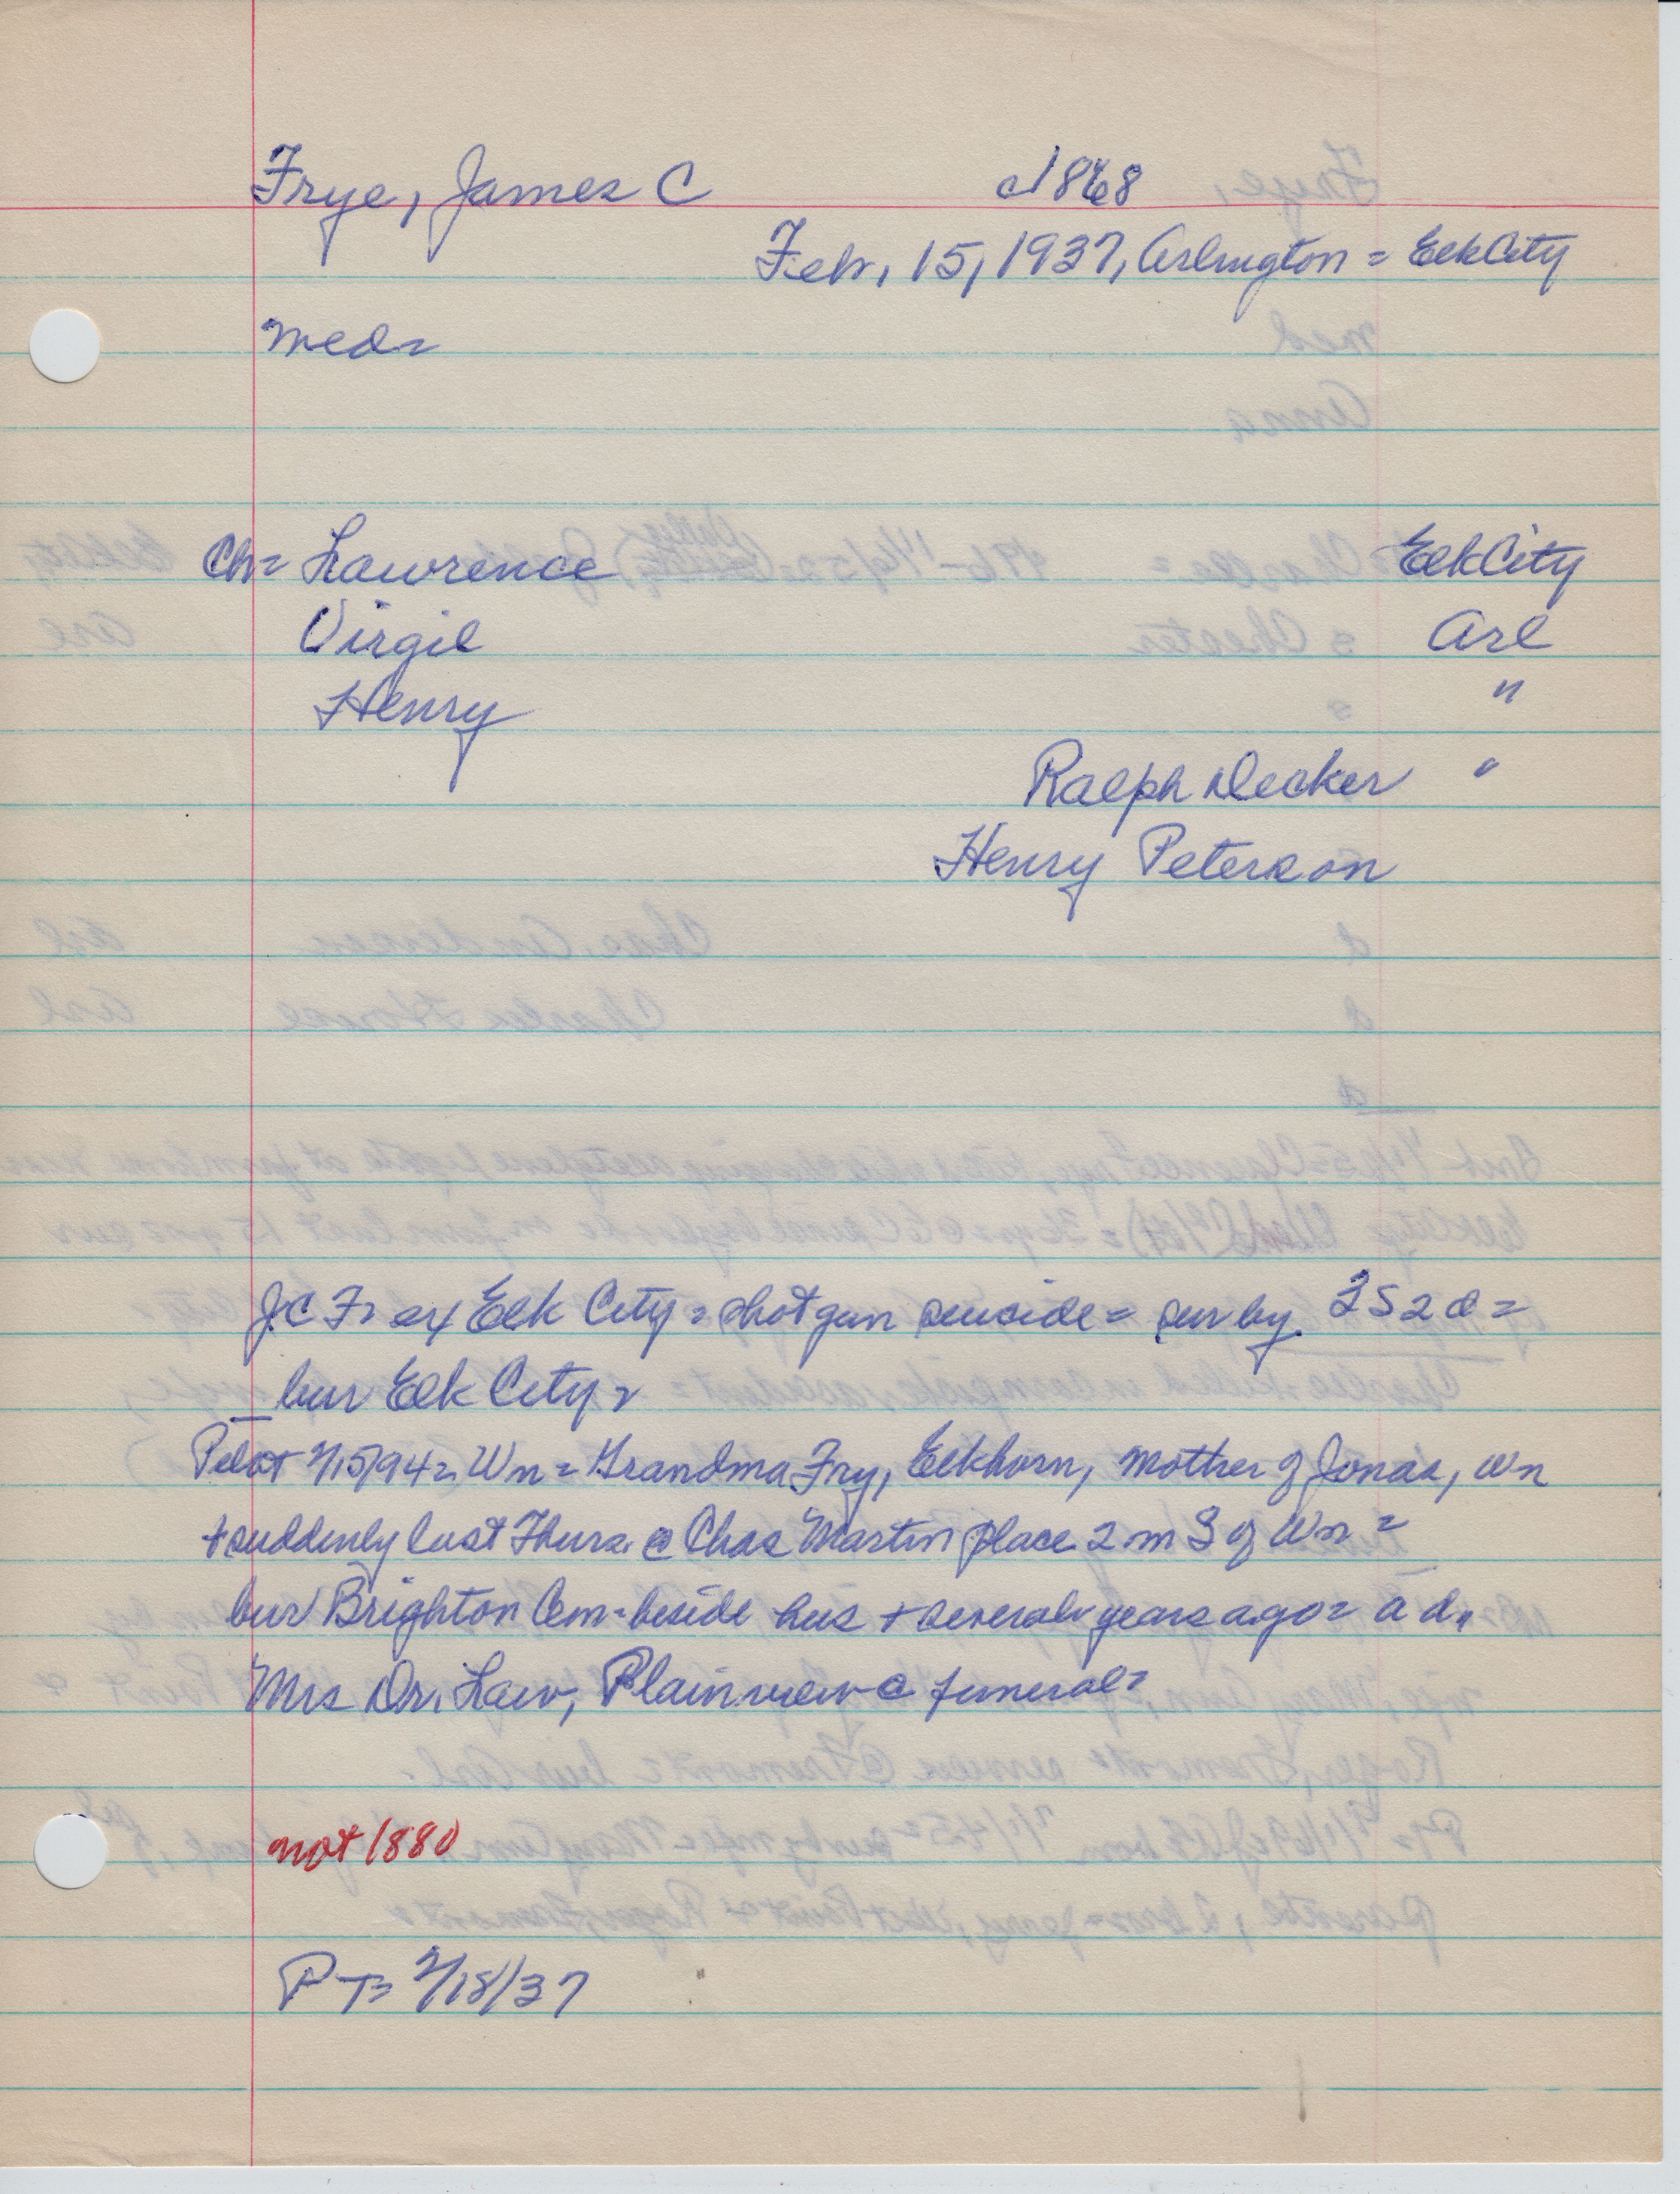 Frye, James C c1868
Feb. 15, 1937, Arlington = Elk City
med=
Ch= Lawrence Elk City
Virgil Arl
Henry "
Ralph Decker "
Henry Peterson
J.C Fr ex Elk City = shotgun suicide = sur by 3 S 2 d =
bur Elk City =
Pilot 2/15/94 = Wn = Grandma Fry, Elkhorn, mother of Jonas, Wn
+ suddenly last Thurs. @ Chas Martin place 2 m S of Wn =
bur Brighton Cem = beside hus + several years ago = a d,
Mrs Dr. Law, Plainview @ funeral =
not 1880
PT = 2/18/37